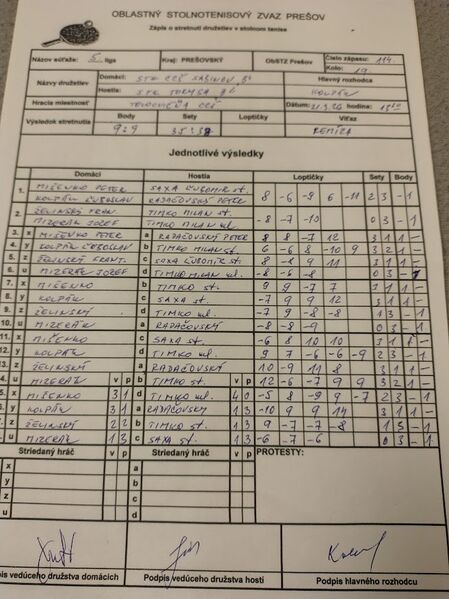 OBLASTNÝ STOLNOTENISOVÝ ZVÄZ PREŠOV
Zápis o stretnutí družstiev v stolnom tenise
Názov súťaže: 5. liga Kraj: PREŠOVSKÝ ObSTZ Prešov Číslo zápasu: 114.
Kolo: 19
Názvy družstiev Domáci: STO CCŠ SABINOV "B" Hlavný rozhodca
Hostia: TORYSA KOLPÁK
Hracia miestnosť TELOCVIČŇA CCŠ Dátum: hodina:
Výsledok stretnutia Body Sety Loptičky Víťaz
9:9 REMÍZA
Jednotlivé výsledky
Domáci Hostia Loptičky Sety Body
1. MIČENKO PETER SAXA ĽUBOMÍR st. 8 -6 -9 6 -11 2 3 - 1
KOLPÁK ĽUBOSLAV RADAČOVSKÝ PETER
2. ŽELINSKÝ FRAN. TIMKO MILAN st. -8 -7 -10 0 3 - 1
MIZERÁK JOZEF TIMKO MILAN ml.
3. x MIČENKO PETER a RADAČOVSKÝ PETER 8 8 -7 12 3 1 1 -
4. y KOLPÁK ĽUBOSLAV b TIMKO MILAN st. 6 -6 8 -10 9 3 2 1 -
5. z ŽELINSKÝ FRANT. c SAXA ĽUBOMÍR st. 8 -8 9 11 3 1 1 -
6. u MIZERÁK JOZEF d TIMKO MILAN ml. -8 -6 -8 0 3 - 1
7. x MIČENKO b TIMKO st. 9 9 -7 7 3 1 1 -
8. y KOLPÁK c SAXA st. -7 9 9 12 3 1 1 -
9. z ŽELINSKÝ d TIMKO ml. -7 9 -8 -8 1 3 - 1
10. u MIZERÁK a RADAČOVSKÝ -8 -8 -9 0 3 - 1
11. x MIČENKO c SAXA st. -6 8 10 10 3 1 1 -
12. y KOLPÁK d TIMKO ml. 9 7 -6 -6 -9 2 3 - 1
z ŽELINSKÝ a RADAČOVSKÝ 10 -9 11 8 3 1 1 -
4. u MIZERÁK v p b TIMKO st. v p 12 -6 -7 9 9 3 2 1 -
x MIČENKO 3 1 d TIMKO ml. 4 0 -5 8 -9 9 -7 2 3 - 1
y KOLPÁK 3 1 a RADAČOVSKÝ 1 3 -10 9 9 14 3 1 1 -
z ŽELINSKÝ 2 2 b TIMKO st. 1 3 9 -7 -7 -8 1 3 - 1
u MIZERÁK 1 3 c SAXA st. 1 3 -6 -7 -6 0 3 - 1
Striedaný hráč v p Striedaný hráč v p PROTESTY:
x a
y b
z c
u d
pis vedúceho družstva domácich Podpis vedúceho družstva hostí Podpis hlavného rozhodcu